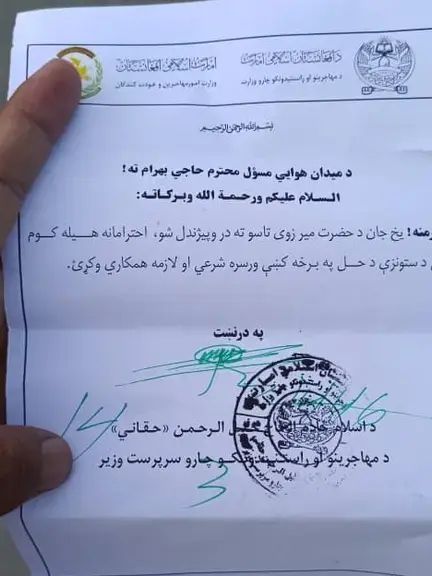 امارت اسلامی افغانستان
وزارت امور مهاجرین و عودت کنندگان
د افغانستان اسلامي امارت
د مهاجرینو او راستنیدونکو چارو وزارت
بسم الله الرحمن الرحیم
د میدان هوايي مسؤل محترم حاجي بهرام ته!
السلام علیکم ورحمة الله وبرکاته:
رمنه! یخ جان د حضرت میر زوی تاسو ته در وپیژندل شو، احترامانه هیله کوم
د ستونزې د حل په برخه کښې ورسره شرعي او لازمه همکاري وکړئ.
په درنښت
د اسلام خادم الحاج خلیل الرحمن «حقاني»
د مهاجرینو او راستنیدونکو چارو سرپرست وزیر